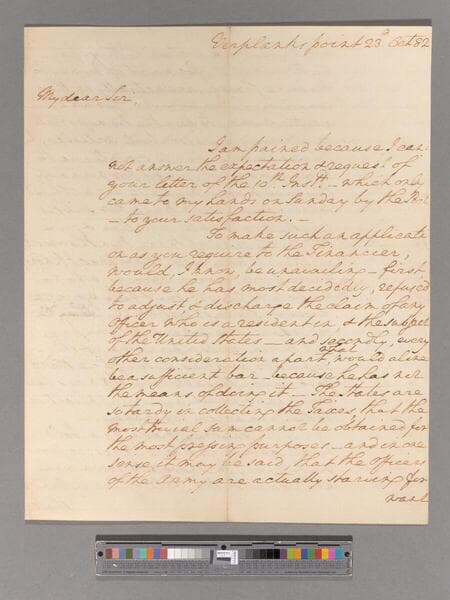 Verplanks point 23d Oct 82
My dear Sir,
I am pained because I can
not answer the expectation & request of
your letter of the 10th Inst. - which only
came to my hands on Sunday by the Post
- to your satisfaction. -
To make such an applicati
on as you require to the Financier,
would, I know, be unavailing - first
because he has most decidedly, refused
to adjust, & discharge the claim of any
Officer who is a resident in & the subject
of the United States - and secondly, every
other consideration apart, that would alone
be a sufficient bar - because he has not
the means of doing it - The States are
so tardy in collecting the Taxes, that the
most trivial sum cannot be obtained for
the most pressing purposes - and in one
sense, it may be said that the Officers
of the Army are actually starving for
want